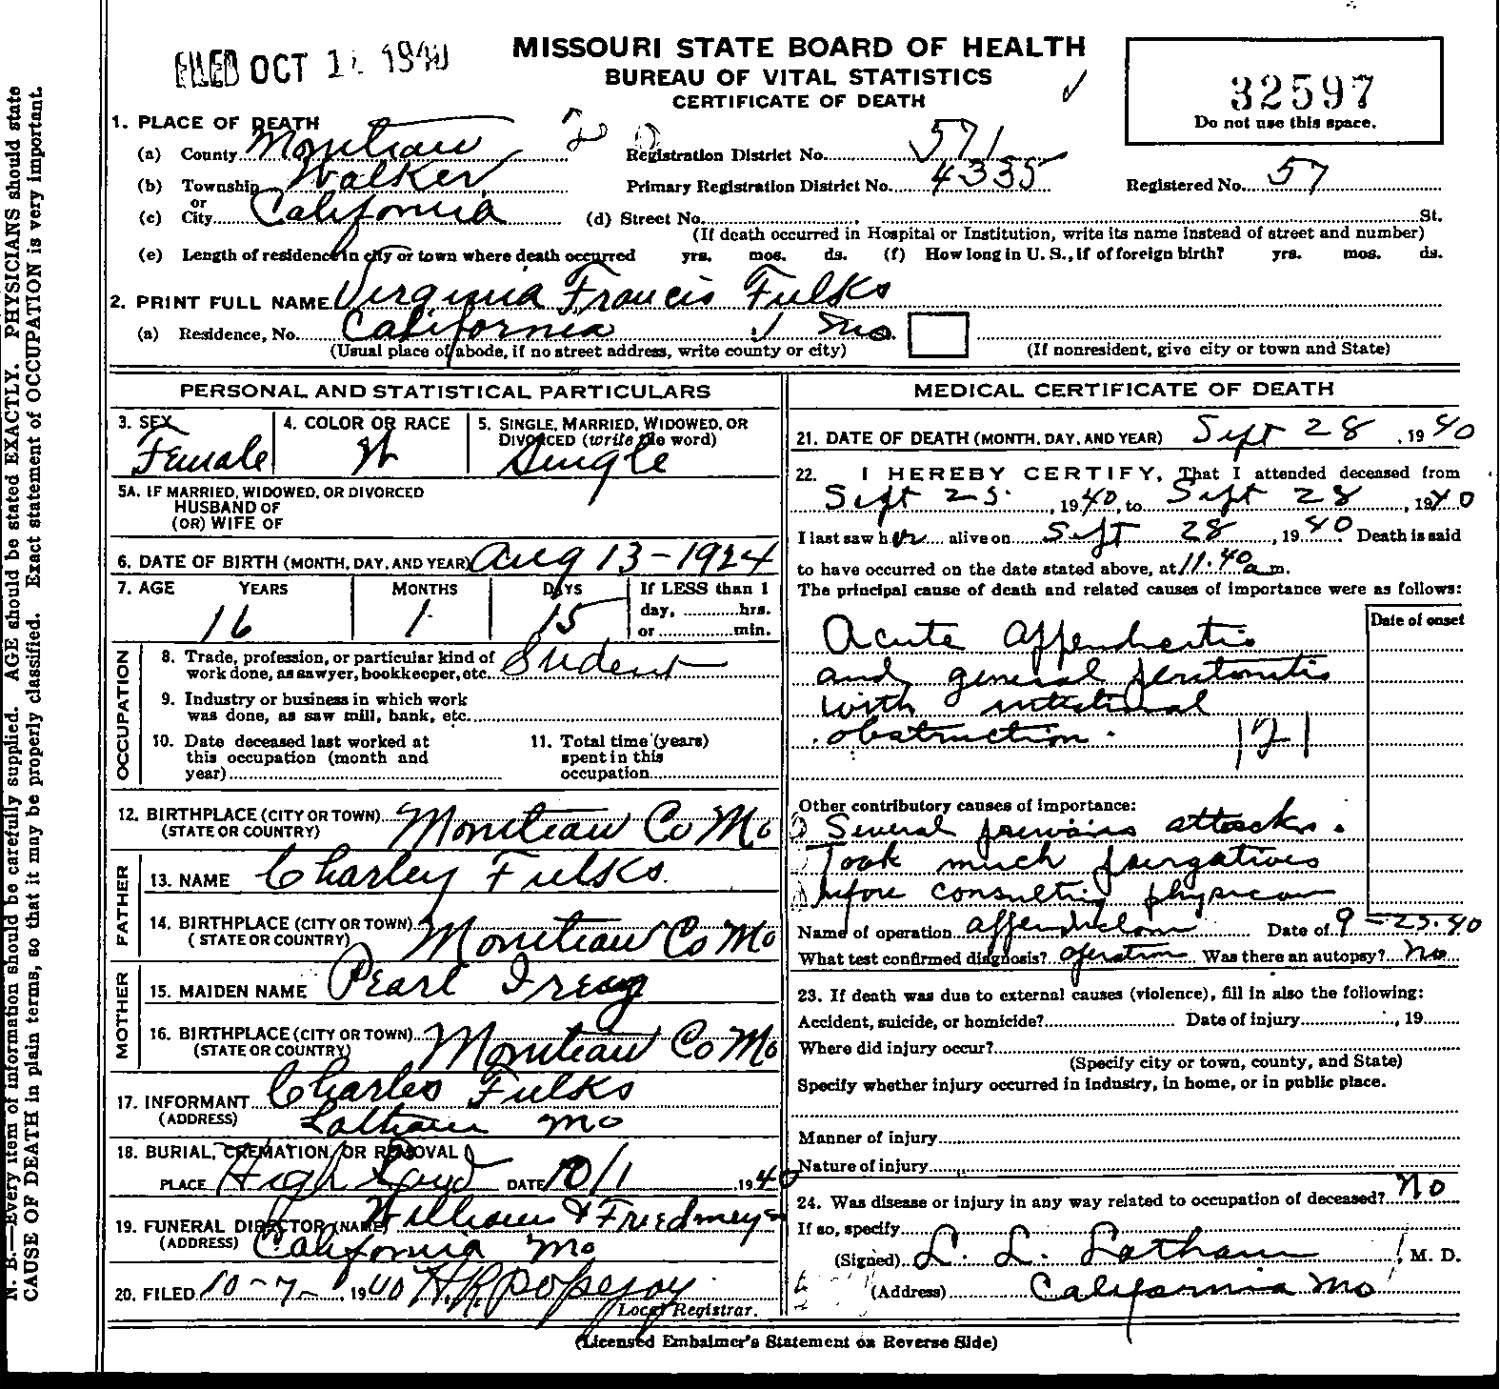 FILED OCT 1 1940
MISSOURI STATE BOARD OF HEALTH
BUREAU OF VITAL STATISTICS
CERTIFICATE OF DEATH
32597
Do not use this space.
1. PLACE OF DEATH
(a) County Moniteau
Registration District No. 571
(b) Township Walker
Primary Registration District No. 4335
Registered No. 57
or
(c) City California
(d) Street No. St.
(If death occurred in Hospital or Institution, write its name instead of street and number)
(e) Length of residence in city or town where death occurred yrs. mos. ds. (f) How long in U. S., if of foreign birth? yrs. mos. ds.
2. PRINT FULL NAME Virginia Francis Fulks
(a) Residence, No. California Mo.
(Usual place of abode, if no street address, write county or city) (If nonresident, give city or town and State)
PERSONAL AND STATISTICAL PARTICULARS
3. SEX Female
4. COLOR OR RACE W
5. SINGLE, MARRIED, WIDOWED, OR DIVORCED (write the word) Single
5A. IF MARRIED, WIDOWED, OR DIVORCED
HUSBAND OF
(OR) WIFE OF
6. DATE OF BIRTH (MONTH, DAY, AND YEAR) Aug 13-1924
7. AGE YEARS MONTHS DAYS If LESS than 1
day, hrs.
16 1 15 or min.
OCCUPATION
8. Trade, profession, or particular kind of
work done, as sawyer, bookkeeper, etc. Student
9. Industry or business in which work
was done, as saw mill, bank, etc.
10. Date deceased last worked at
this occupation (month and
year)
11. Total time (years)
spent in this
occupation
12. BIRTHPLACE (CITY OR TOWN) Moniteau Co Mo
(STATE OR COUNTRY)
FATHER
13. NAME Charley Fulks.
14. BIRTHPLACE (CITY OR TOWN) Moniteau Co Mo
(STATE OR COUNTRY)
MOTHER
15. MAIDEN NAME Pearl
16. BIRTHPLACE (CITY OR TOWN) Moniteau Co Mo
(STATE OR COUNTRY)
17. INFORMANT Charles Fulks
(ADDRESS) Latham Mo
18. BURIAL, CREMATION, OR REMOVAL
PLACE High DATE 10/1 1940
19. FUNERAL DIRECTOR (NAME) Williams & Friedmeyer
(ADDRESS) California Mo
20. FILED 10-7- 1940 H.R. Popejoy
Local Registrar.
MEDICAL CERTIFICATE OF DEATH
21. DATE OF DEATH (MONTH, DAY, AND YEAR) Sept 28, 1940
22. I HEREBY CERTIFY, That I attended deceased from
Sept 25. 1940, to Sept 28, 1940
I last saw her alive on Sept 28, 1940 Death is said
to have occurred on the date stated above, at 11.40 a m.
The principal cause of death and related causes of importance were as follows:
Date of onset
Acute appendicitis
and general peritonitis
with intestinal
obstruction. 121
Other contributory causes of importance:
Several previous attacks.
Took much purgatives
before consulting physician
Name of operation appendictom Date of 9-25-40
What test confirmed diagnosis? operation Was there an autopsy? No
23. If death was due to external causes (violence), fill in also the following:
Accident, suicide, or homicide? Date of injury , 19
Where did injury occur?
(Specify city or town, county, and State)
Specify whether injury occurred in industry, in home, or in public place.
Manner of injury
Nature of injury
24. Was disease or injury in any way related to occupation of deceased? No
If so, specify
(Signed) L. L. Latham, M. D.
(Address) California Mo
(Licensed Embalmer's Statement on Reverse Side)
N. B.—Every item of information should be carefully supplied. AGE should be stated EXACTLY. PHYSICIANS should state
CAUSE OF DEATH in plain terms, so that it may be properly classified. Exact statement of OCCUPATION is very important.